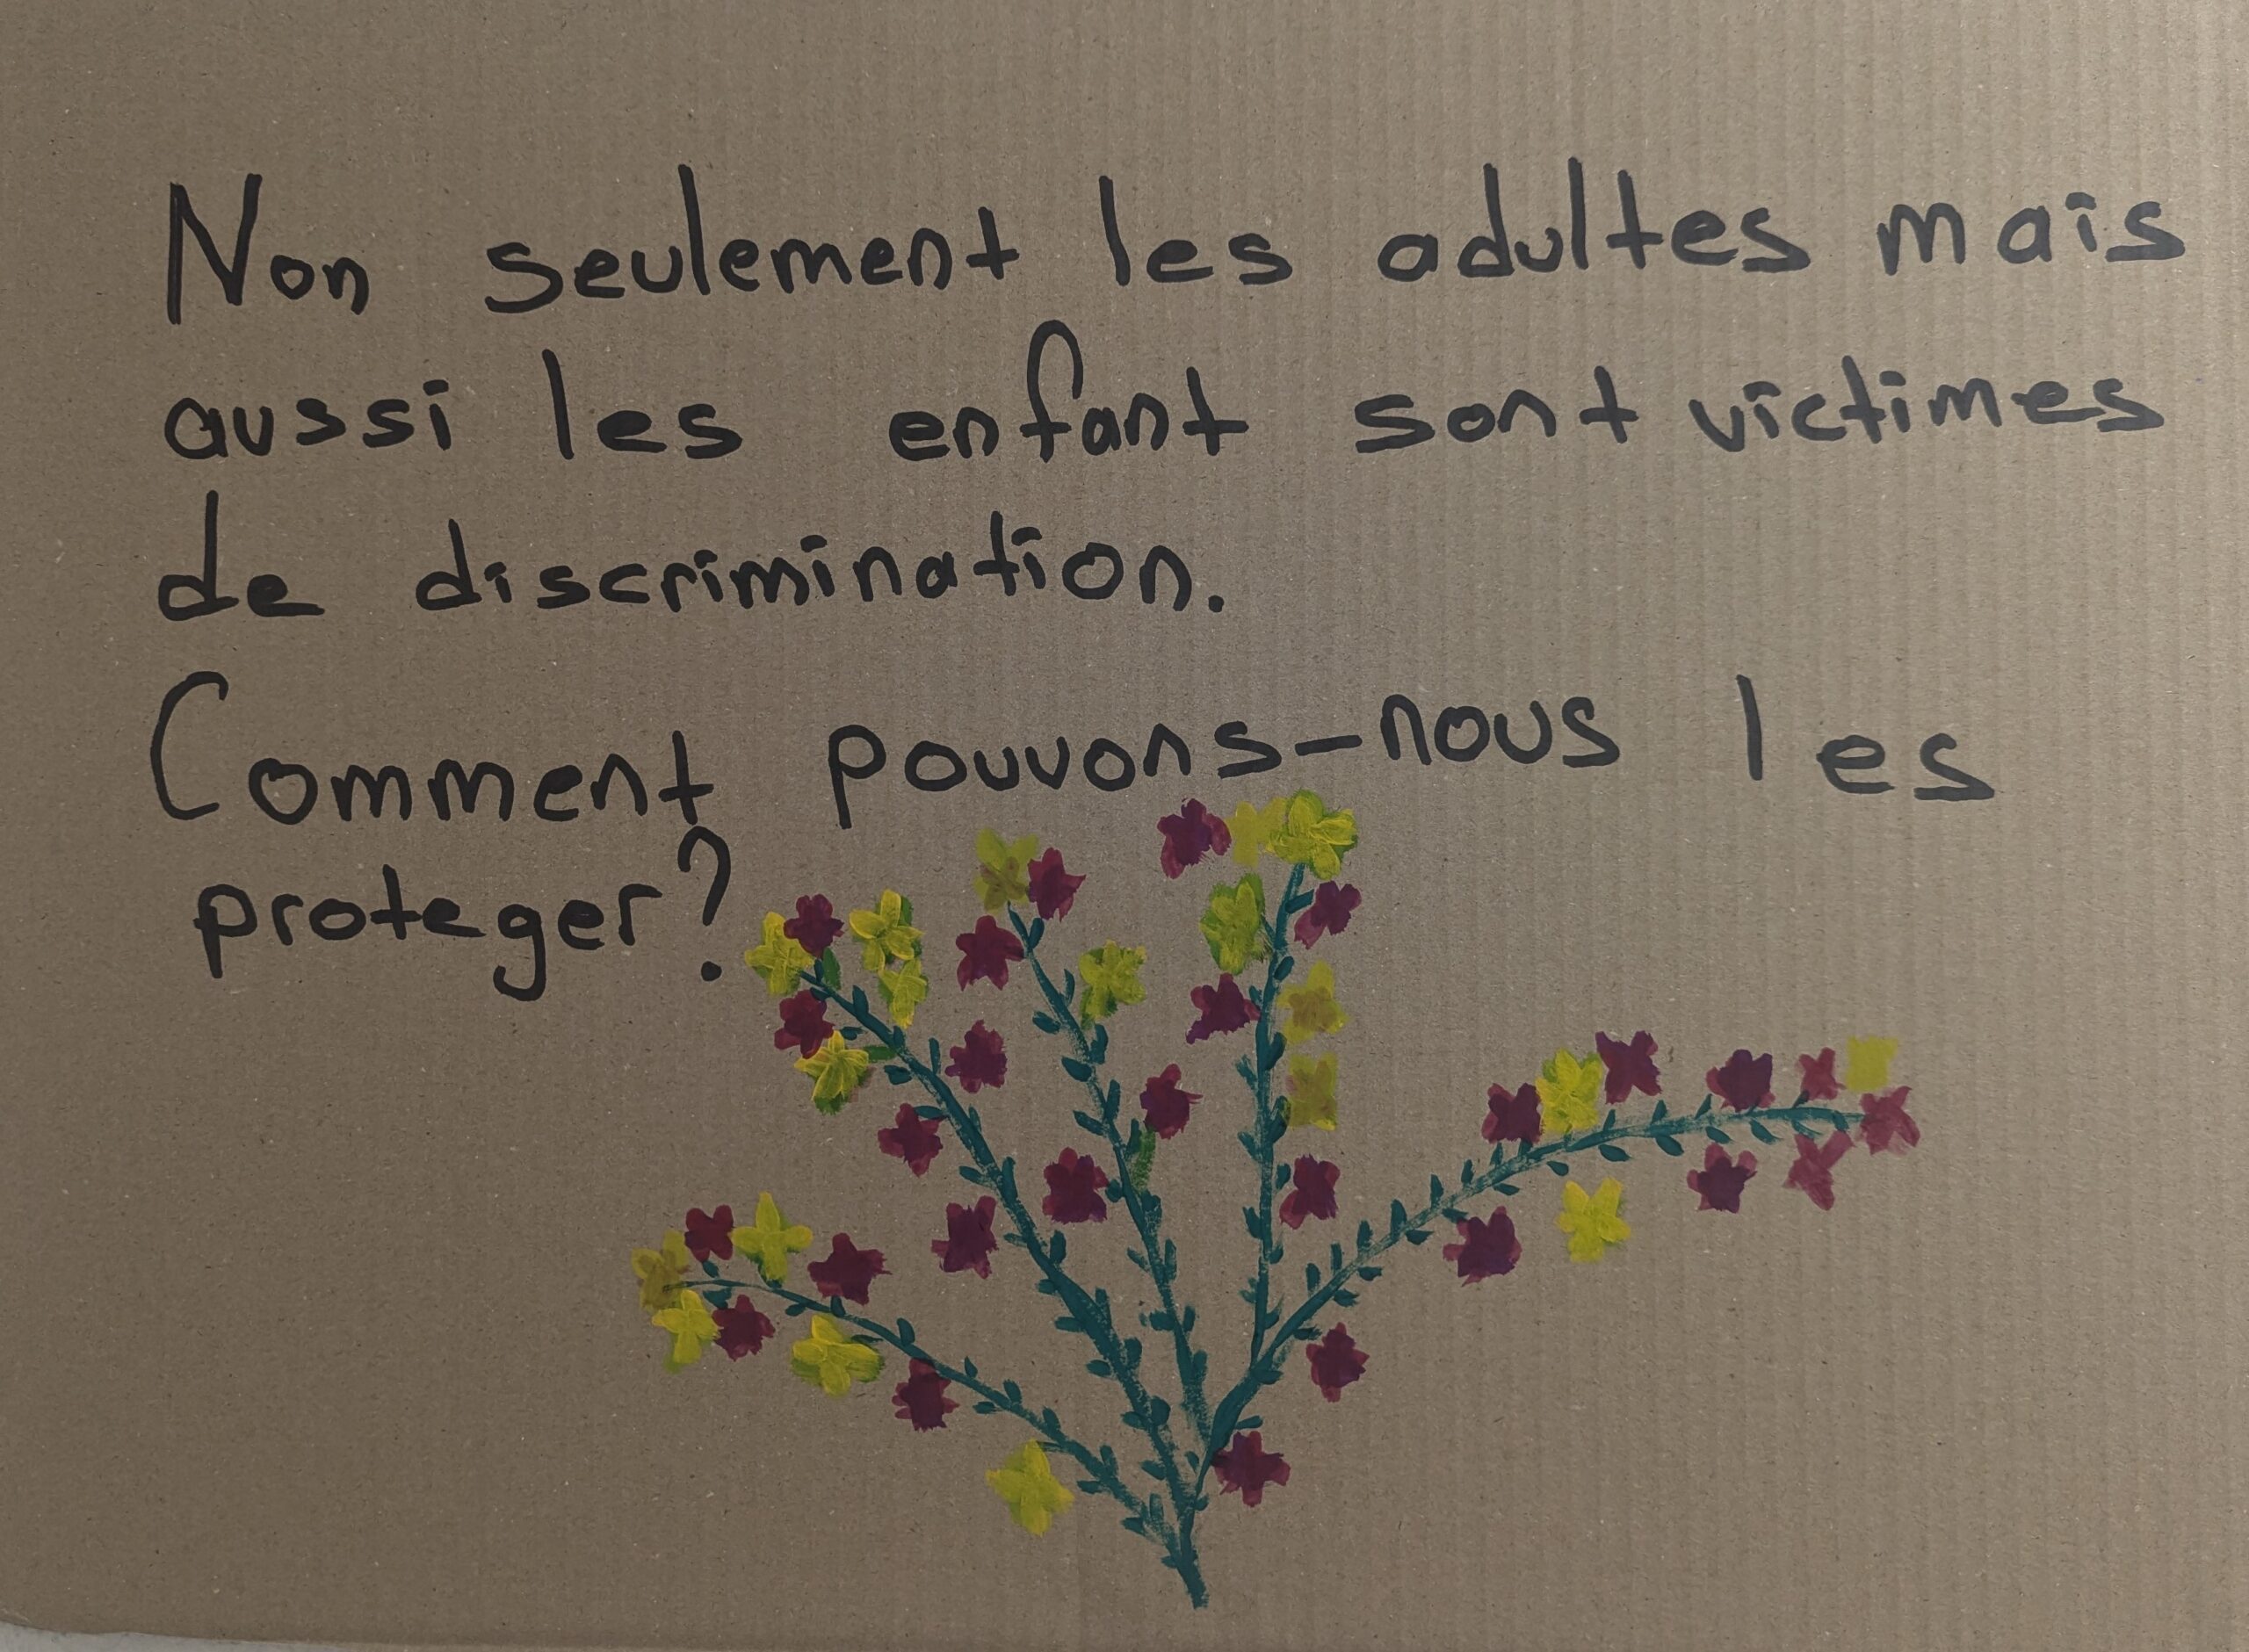 Non seulement les adultes mais
aussi les enfant sont victimes
de discrimination.
Comment pouvons-nous les
proteger?